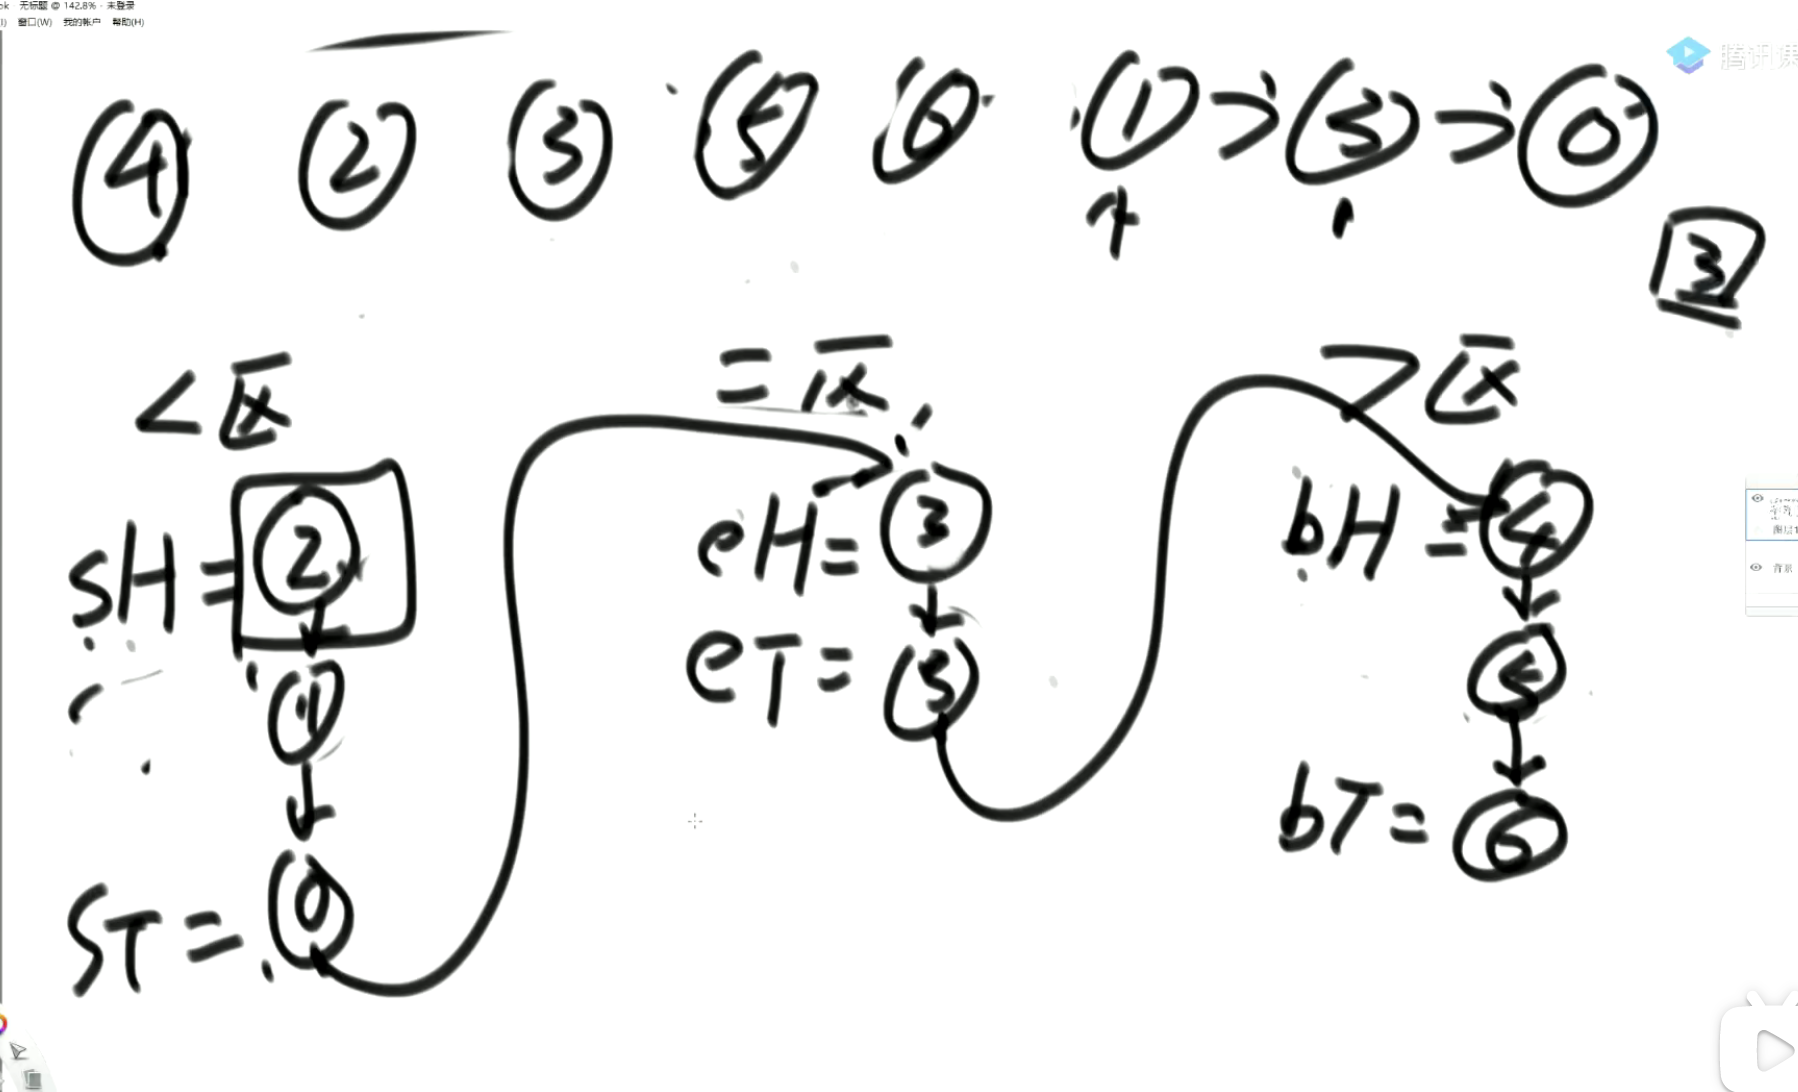 无标题 @ 142.8% - 未登录
窗口(W) 我的帐户 帮助(H)
腾讯课
4 2 3 5 6 1 → 3 → 0
3
<区 =区 >区
sH = 2
1
sT = 0
eH = 3
eT = 3
bH = 4
5
bT = 6
背景